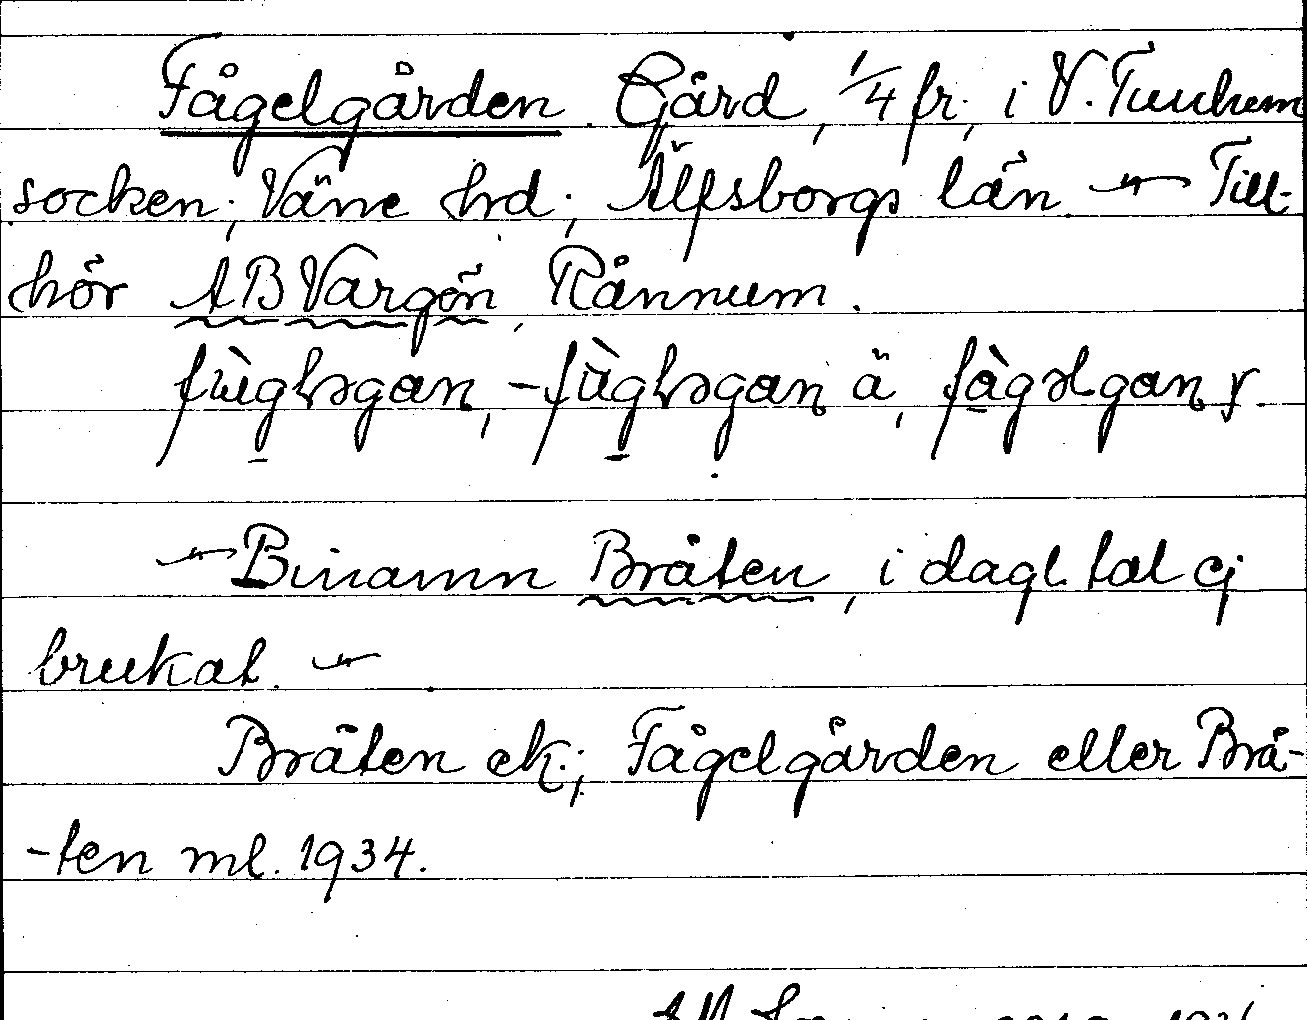 Fågelgården. Gård, 1/4 fr, i V. Tunhem
socken; Väne hrd; Älfsborgs län. — Till-
hör AB Vargön, Rånnum.
ä, y.
— Binamn Bråten, i dagl. tal ej
brukat. —
Bråten ek; Fågelgården eller Brå-
-ten ml. 1934.